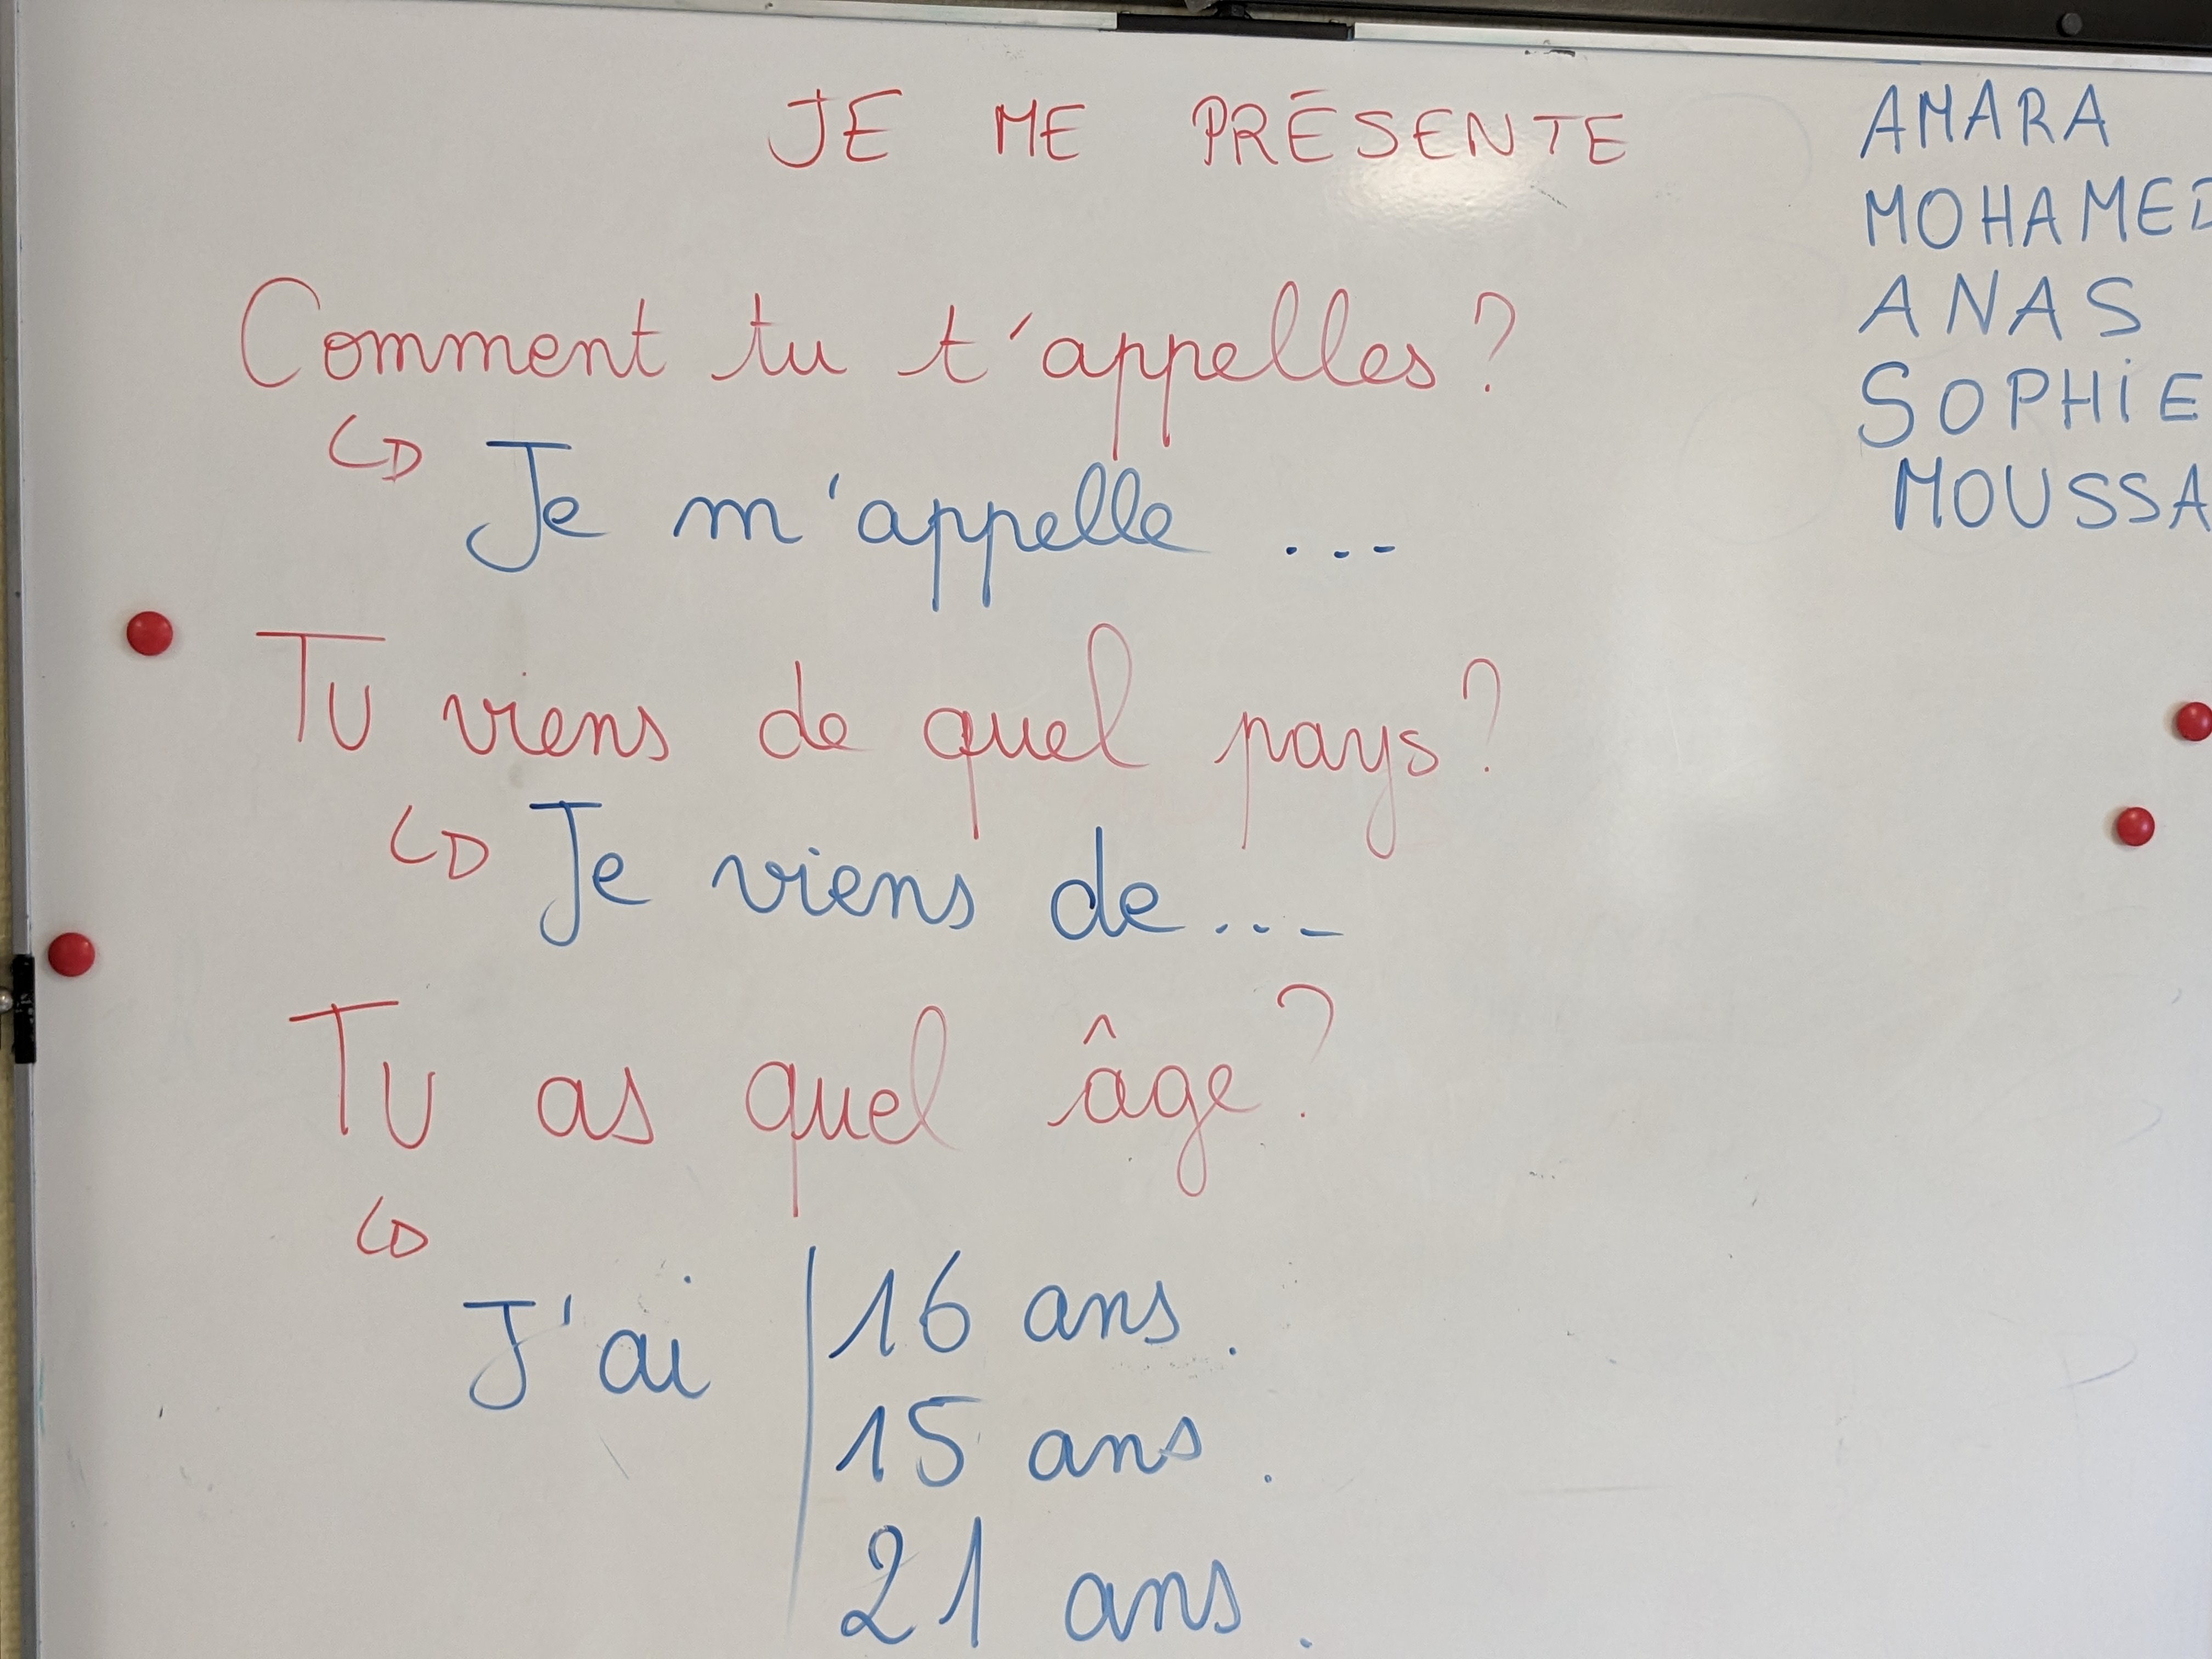 JE ME PRÉSENTE
Comment tu t'appelles ?
Je m'appelle ...
Tu viens de quel pays ?
Je viens de ...
Tu as quel âge ?
J'ai 16 ans.
15 ans.
21 ans.
AMARA
MOHAMED
ANAS
SOPHiE
MOUSSA